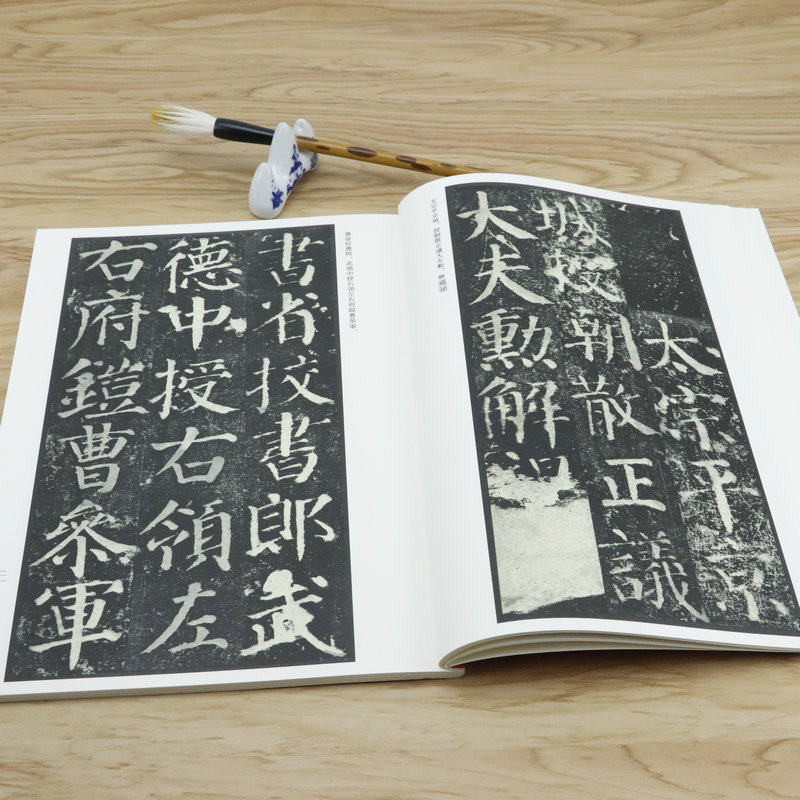 太宗平京
城授朝散正議
大夫勳解
太宗平京城，授朝散正議大夫勳，解褐秘
書省挍書郎武
德中授右領左
右府鎧曹叅軍
書省校書郎，武德中授右領左右府鎧曹叅軍，